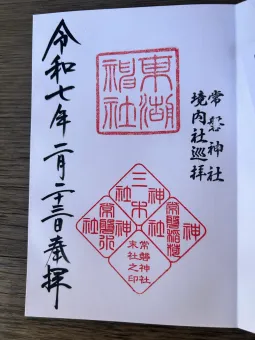 常磐神社
境内社巡拝
東湖
神社
三木
神社
常磐稲荷
神社
常磐神社
末社之印
令和七年二月二十三日奉拝